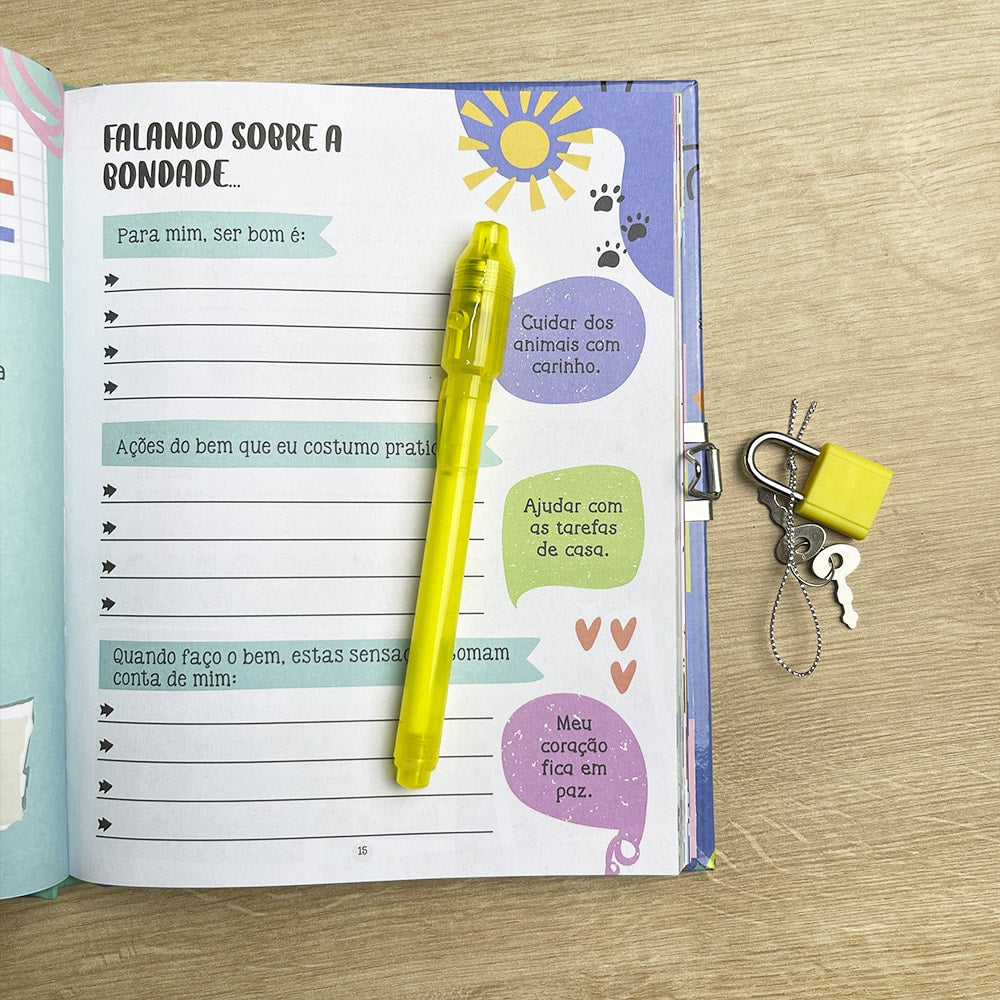 FALANDO SOBRE A
BONDADE...
Para mim, ser bom é:
Cuidar dos
animais com
carinho.
Ações do bem que eu costumo
Ajudar com
as tarefas
de casa.
Quando faço o bem, estas
conta de mim:
Meu
coração
fica em
paz.
15